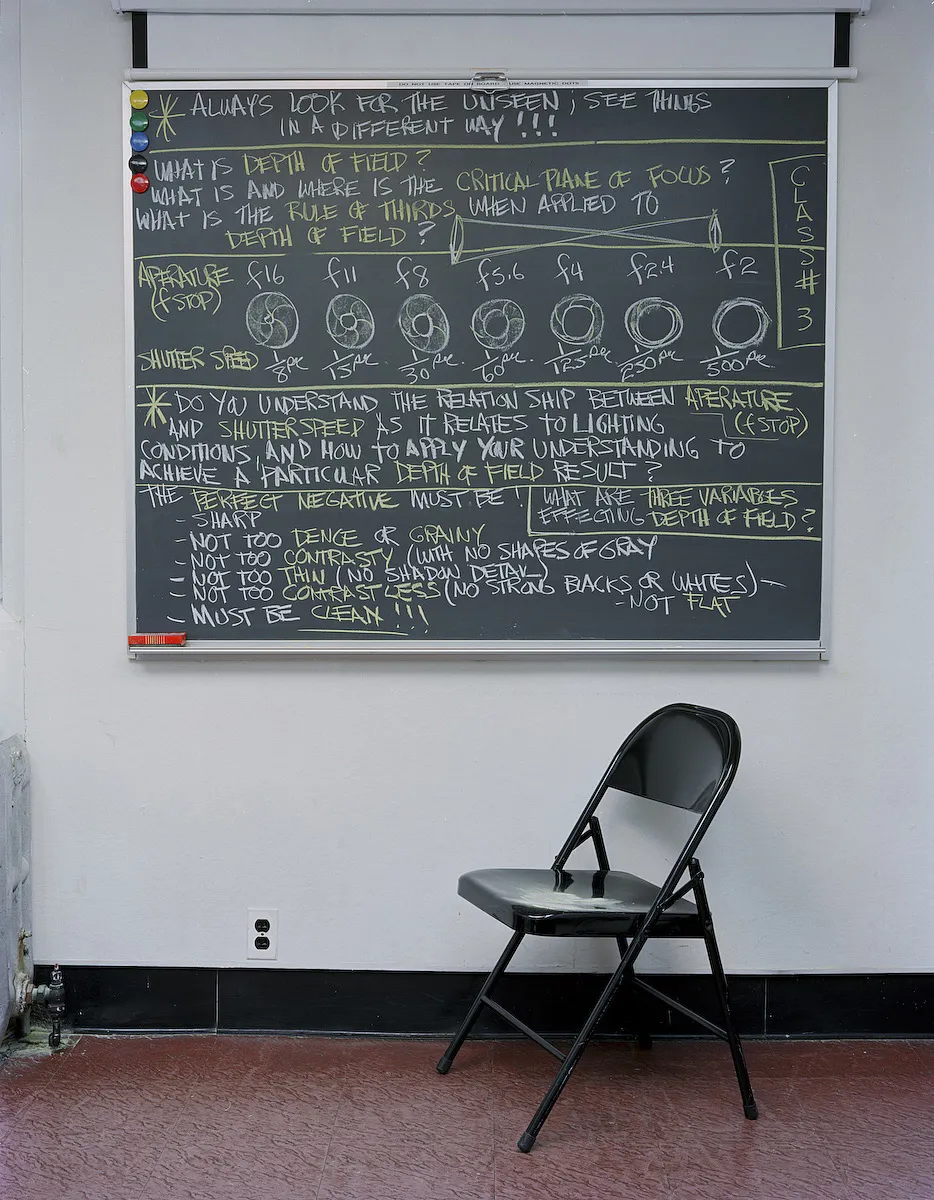 DO NOT USE TAPE ON BOARD USE MAGNETIC DOTS
* ALWAYS LOOK FOR THE UNSEEN; SEE THINGS
IN A DIFFERENT WAY!!!
WHAT IS DEPTH OF FIELD?
WHAT IS AND WHERE IS THE CRITICAL PLANE OF FOCUS?
WHAT IS THE RULE OF THIRDS WHEN APPLIED TO
DEPTH OF FIELD?
CLASS # 3
APERATURE f16 f11 f8 f5.6 f4 f2.4 f2
(fSTOP)
SHUTTER SPEED 1/8 sec 1/15 sec 1/30 sec 1/60 sec. 1/125 sec 1/250 sec 1/500 sec.
* DO YOU UNDERSTAND THE RELATION SHIP BETWEEN APERATURE
(fSTOP)
AND SHUTTERSPEED AS IT RELATES TO LIGHTING
CONDITIONS AND HOW TO APPLY YOUR UNDERSTANDING TO
ACHIEVE A PARTICULAR DEPTH OF FIELD RESULT?
THE PERFECT NEGATIVE MUST BE!
- SHARP
- NOT TOO DENCE OR GRAINY
- NOT TOO CONTRASTY (WITH NO SHAPES OF GRAY
- NOT TOO THIN (NO SHADOW DETAIL)
- NOT TOO CONTRASTLESS (NO STRONG BACKS OR WHITES) -
- NOT FLAT
- MUST BE CLEAN!!!
WHAT ARE THREE VARIABLES
EFFECTING DEPTH OF FIELD?